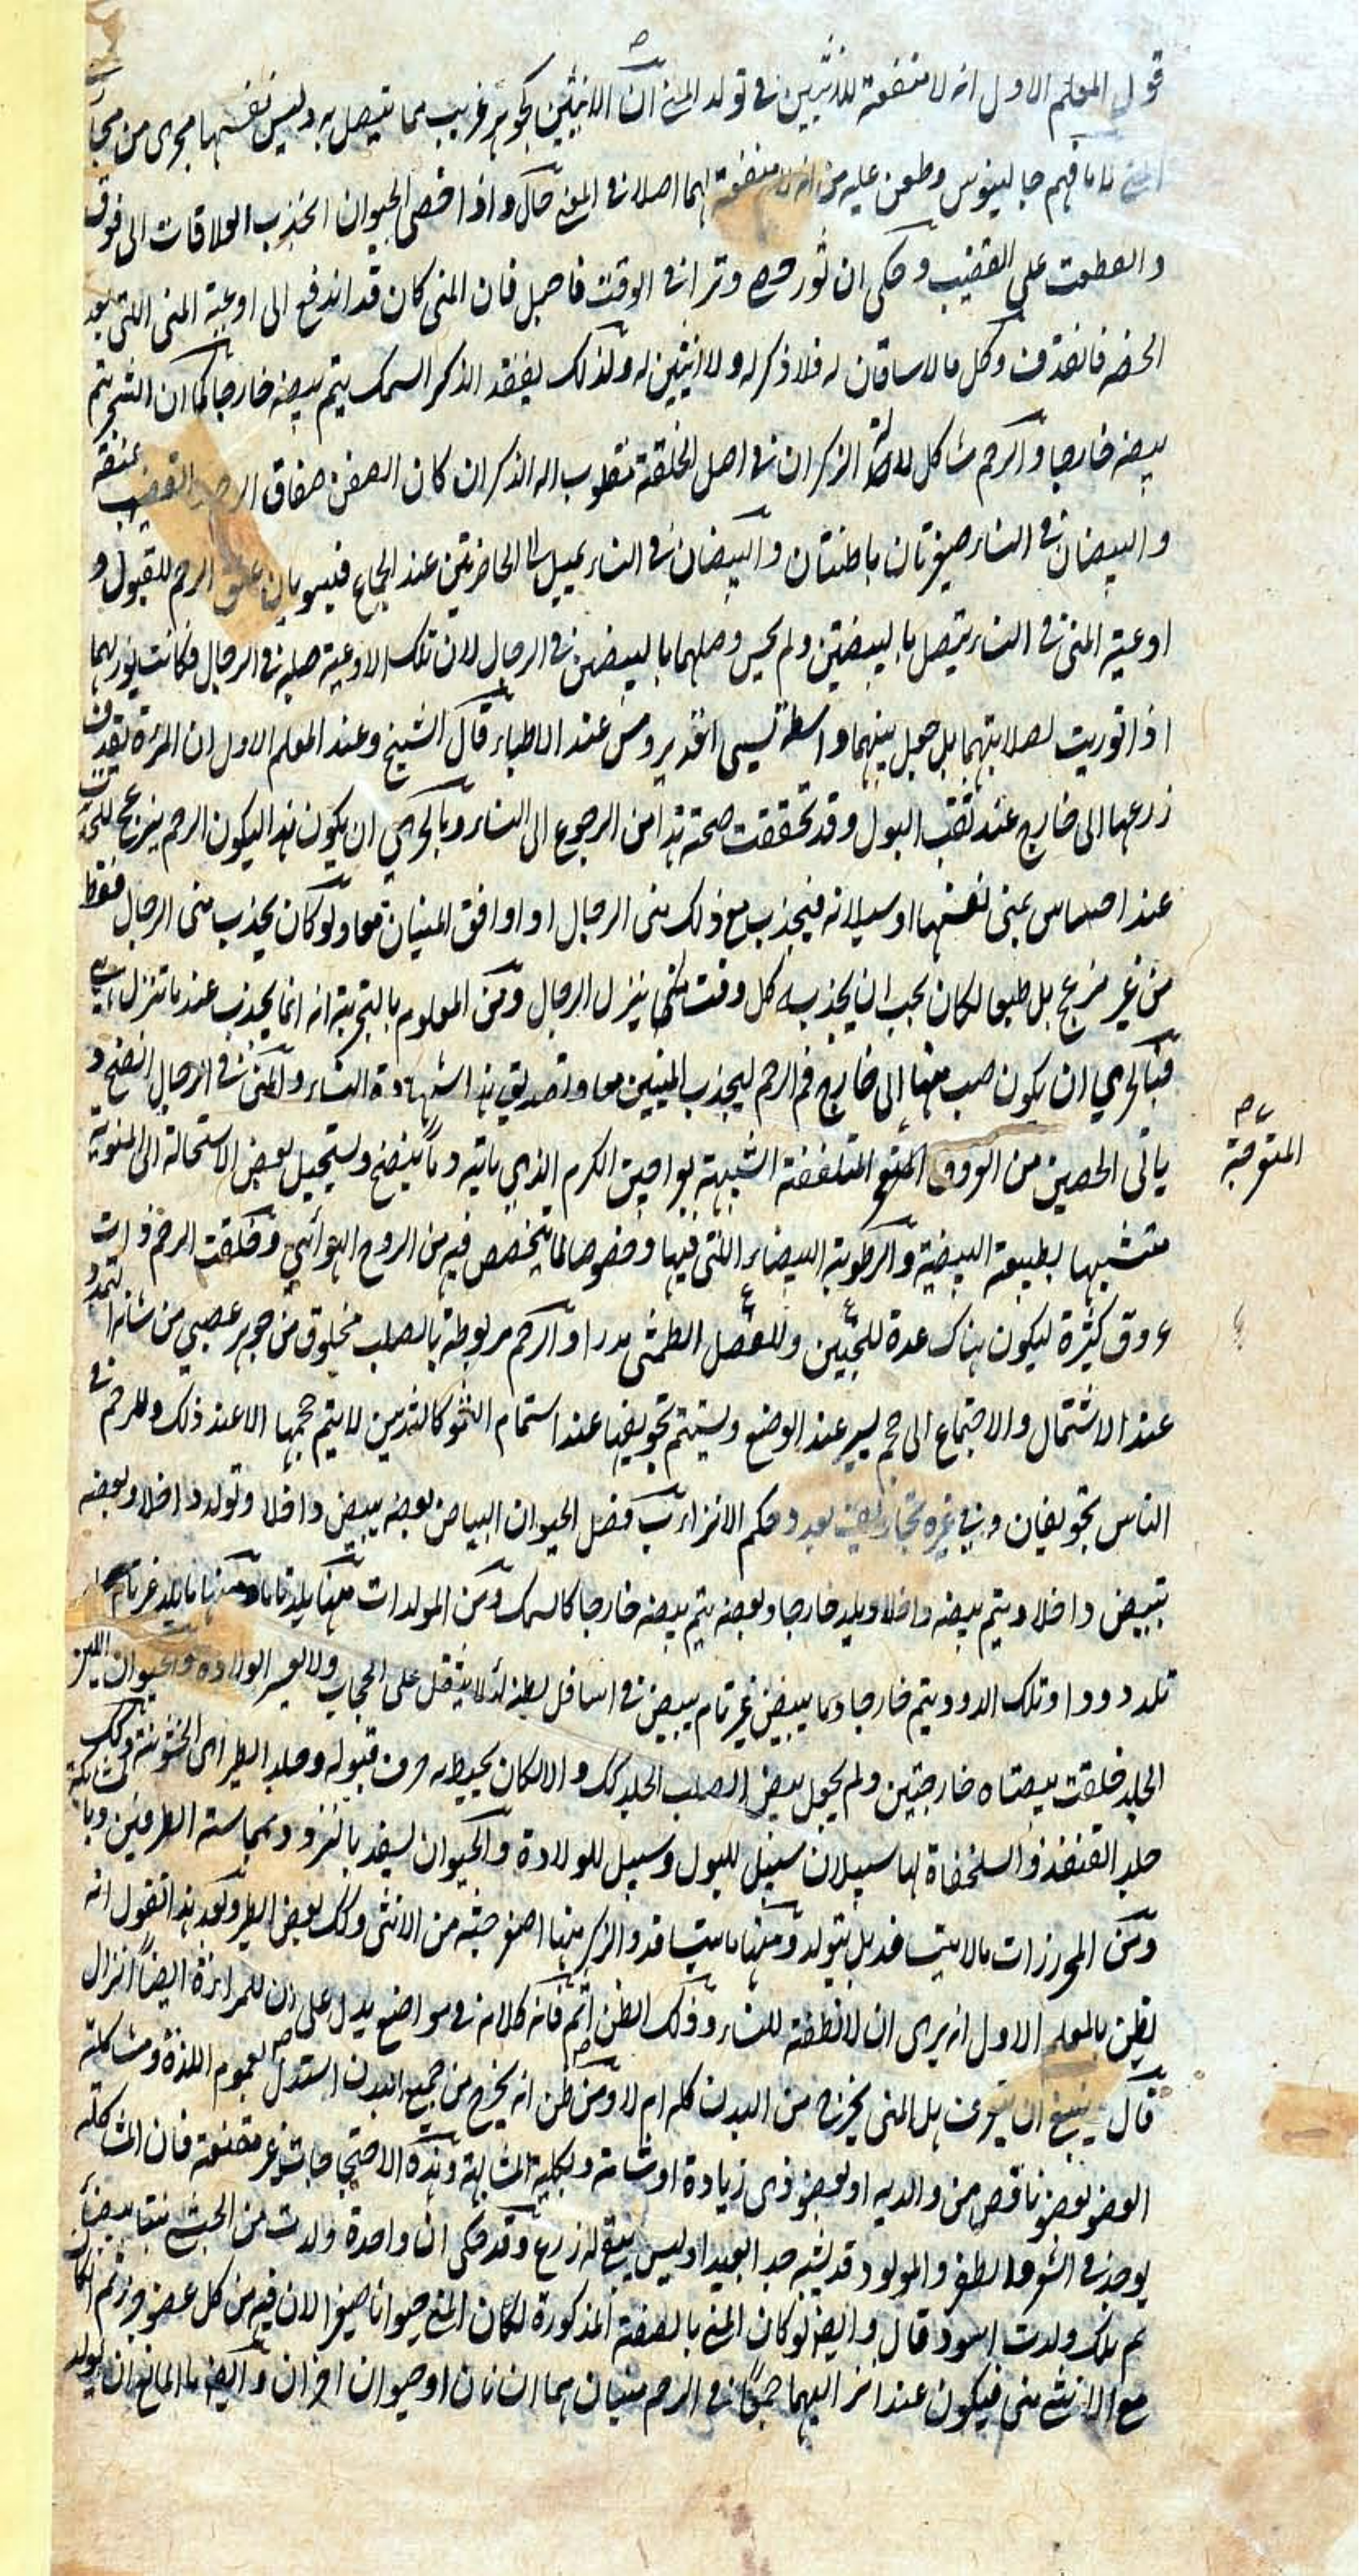 قول المعلم الاول انه لا منفعة للانثيين فى تولد المنى ان الانثيين كجوهر غريب مما يتصل به وليس نفسها مجرى من مجارى
المنى فهم جالينوس وطعن عليه من انه لا منفعة لهما اصلا فى المنى قال واذا خصى الحيوان انجذب العلاقات الى فوق
وانعطفت على القضيب وحكى ان ثور خصى ونزا فى الوقت فاحبل فان المنى كان قد اندفع الى اوعية المنى التى بعد
الخصى فانقذف وكل ما لا ساقان له فلا ذكر له ولا انثيين له ولذلك يفقد الذكر السمك يتم بيضه خارجا كما ان الشجر يتم
بيضه خارجا والرحم شاكل لالة الذكران فى اصل الخلقة مقلوب اله الذكران كان الصفن صفاق الرحم القضيب عنقه
والبيضتان فى النساء صغيرتان باطنتان والبيضتان فى النساء يميل الى الحاضرتين عند الجماع فيسويان عنق الرحم للقبول و
اوعية المنى فى النساء يتصل بالبيضتين ولم يحس وصلهما بالبيضتين فى الرجال لان تلك الاوعية صلبة فى الرجال فكانت يوذيهما
اذا توربت لصلابتهما بل جعل بينهما واسطة تسمى افديدومس عند الاطباء قال الشيخ وعند المعلم الاول ان المرءة تقذف
زرعها الى خارج عند ثقب البول وقد تحققت صحة هذا من الرجوع الى النساء وبالحرى ان يكون هذا ليكون الرحم ينزعج للحركة
عند احساس بمنى نفسها وسيلانه فيجذب مع ذلك منى الرجال او اوافق المنيان معا ولو كان يجذب منى الرجال فقط
من غير مزعج بل طبعا لكان يجب ان يجذبه كل وقت ينزل الرجال ومن المعلوم بالتجربة انه انما يجذب عند ما تنزل
فبالحرى ان يكون صب منيها الى خارج فم الرحم ليجذب المنيين معا وتصديق هذا شهادة النساء والمنى فى الرجال انضج و
ياتى الخصيين من العروق الملتفة الشبيهة بلواقيق الكرم الذى ياتيه دما ينضج ويستحيل بعض الاستحالة الى المنوية
المتعوجة
متشبها بطبيعة البيضة والرطوبة البيضاء التى فيها وخصوصا لما يتخضخض فيه من الروح الهوائى وخلقت الرحم ذوات
عروق كثيرة ليكون هناك عدة للجنين وللفضل الطمثى مدرا والرحم مربوطة بالصلب مخلوق من جوهر عصبى من شانه التمدد
عند الاشتمال والاجتماع الى حجم يسير عند الوضع ويستتم تجويفها عند استتمام النمو كالثديين لا يتم حجمها الا عند ذلك وللرحم فى
الناس تجويفان وفى غيره تجاويف بعدد حكم الانزاء فصل الحيوان البياض بعضه يبيض داخلا وتولد داخلا وبعضه
يبيض داخلا ويتم بيضه داخلا ويلد خارجا وبعضه يتم بيضه خارجا كالسمك ومن المولدات منها يلد تاما ومنها ما يلد غير تام
تلد دودا وتلك الدود يتم خارجا وما يبيض غير تام يبيض فى اسافل بطنه لئلا يثقل على الحجاب ولا يعسر الولادة والحيوان اللين
الجلد خلقت بيضتاه خارجتين ولم يجعل بيض الصلب الجلد كك والا لكان يحيط به جرف قبوله وجلد الطير الى الخشونة وكك
جلد القنفذ والسلحفاة لها سبيلان سبيل للبول وسبيل للولادة والحيوان يسفد بالنزو ومماسة الطرفين وبا
ومن المحرزات ما لا يتسافد بل يتولد ومنها ما يتسافد والذكر منها اصغر جثة من الانثى وكك بعض الطير وبعد هذا تقول انه
يظن بالمعلم الاول انه يرى ان لا نطفة للنساء وذلك الظن اثم فانه كلامه فى مواضع يدل على ان للمراءة ايضا انزال
قال ينبغى ان يتعرف هل المنى يخرج من البدن كله ام لا ومن ظن انه يخرج من جميع البدن استدل بعموم اللذة ومشاكلة
العضو بعضو ناقص من والديه او لعضو ذى زيادة او شامة وبكلية المشابهة وهذه الاحتجاجات غير مقنعة فان المشاكلة
يوجد فى الشعر والظفر والمولود قد يشبه جد البعيد اوليس يبقى له زرع وقد حكى ان واحدة ولدت من الحبشى بنتا بيضاء
ثم تلك ولدت اسود قال وايضا لو كان المنى بالصفة المذكورة لكان المنى حيوانا صغيرا لان فيه من كل عضو جزء ثم ان كان
مع الانثى منى فيكون عند انزاليهما جميعا فى الرحم منيان هما انسانان او حيوانان اخران وايضا ما المانع ان يولد